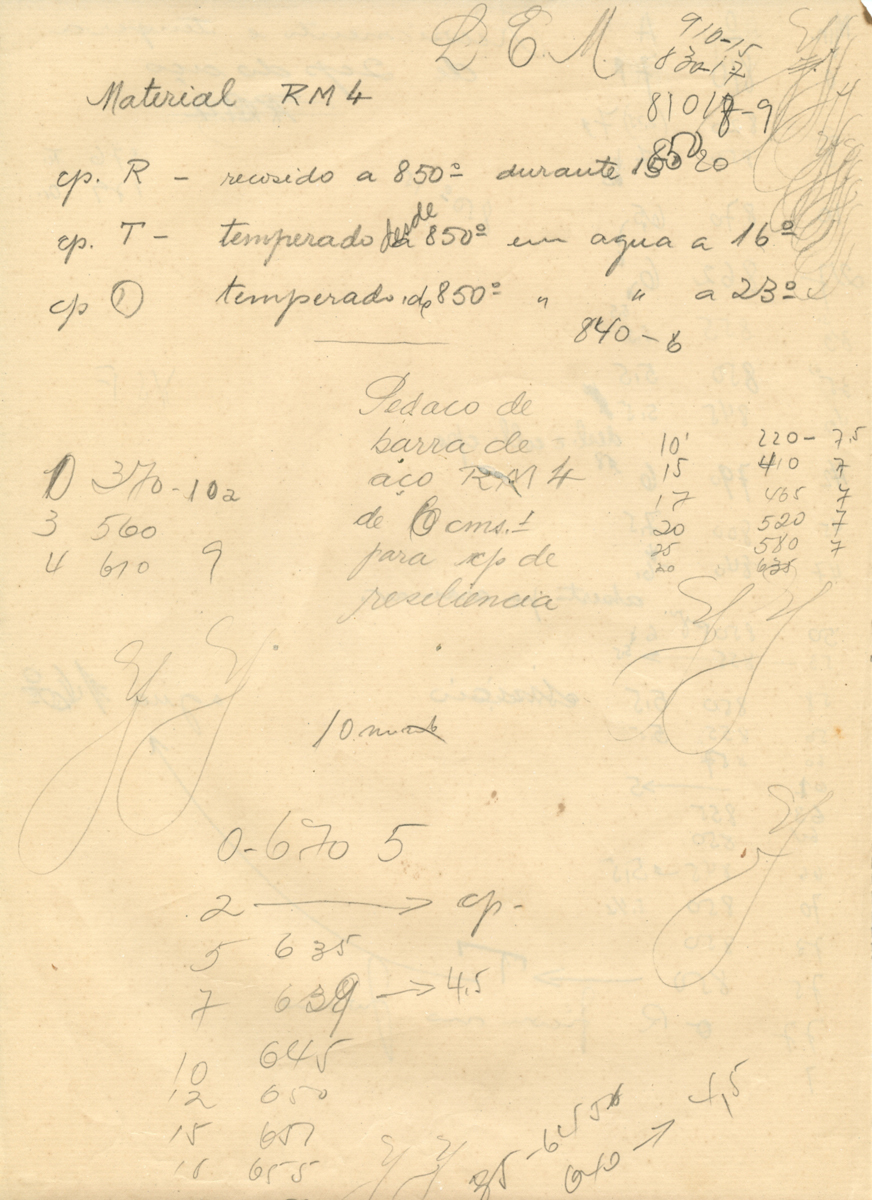 L E M
910-15
830-17
Material RM 4
8-9
cp. R - recosido a 850º durante
cp. T - temperado desde 850º em agua a 16º
cp T temperado 850º " " a 23º
840-6
Pedaco de
barra de
aço RM 4
de 6 cms.
para cp de
resiliencia
370-10
3 560
4 610 9
10' 220-7.5
15 410 7
17 465 7
20 520 7
25 580 7
20 635
10
0-670 5
2 → cp-
5 635
7 639 → 4,5
10 645
12 650
15 657
655
640 → 4,5